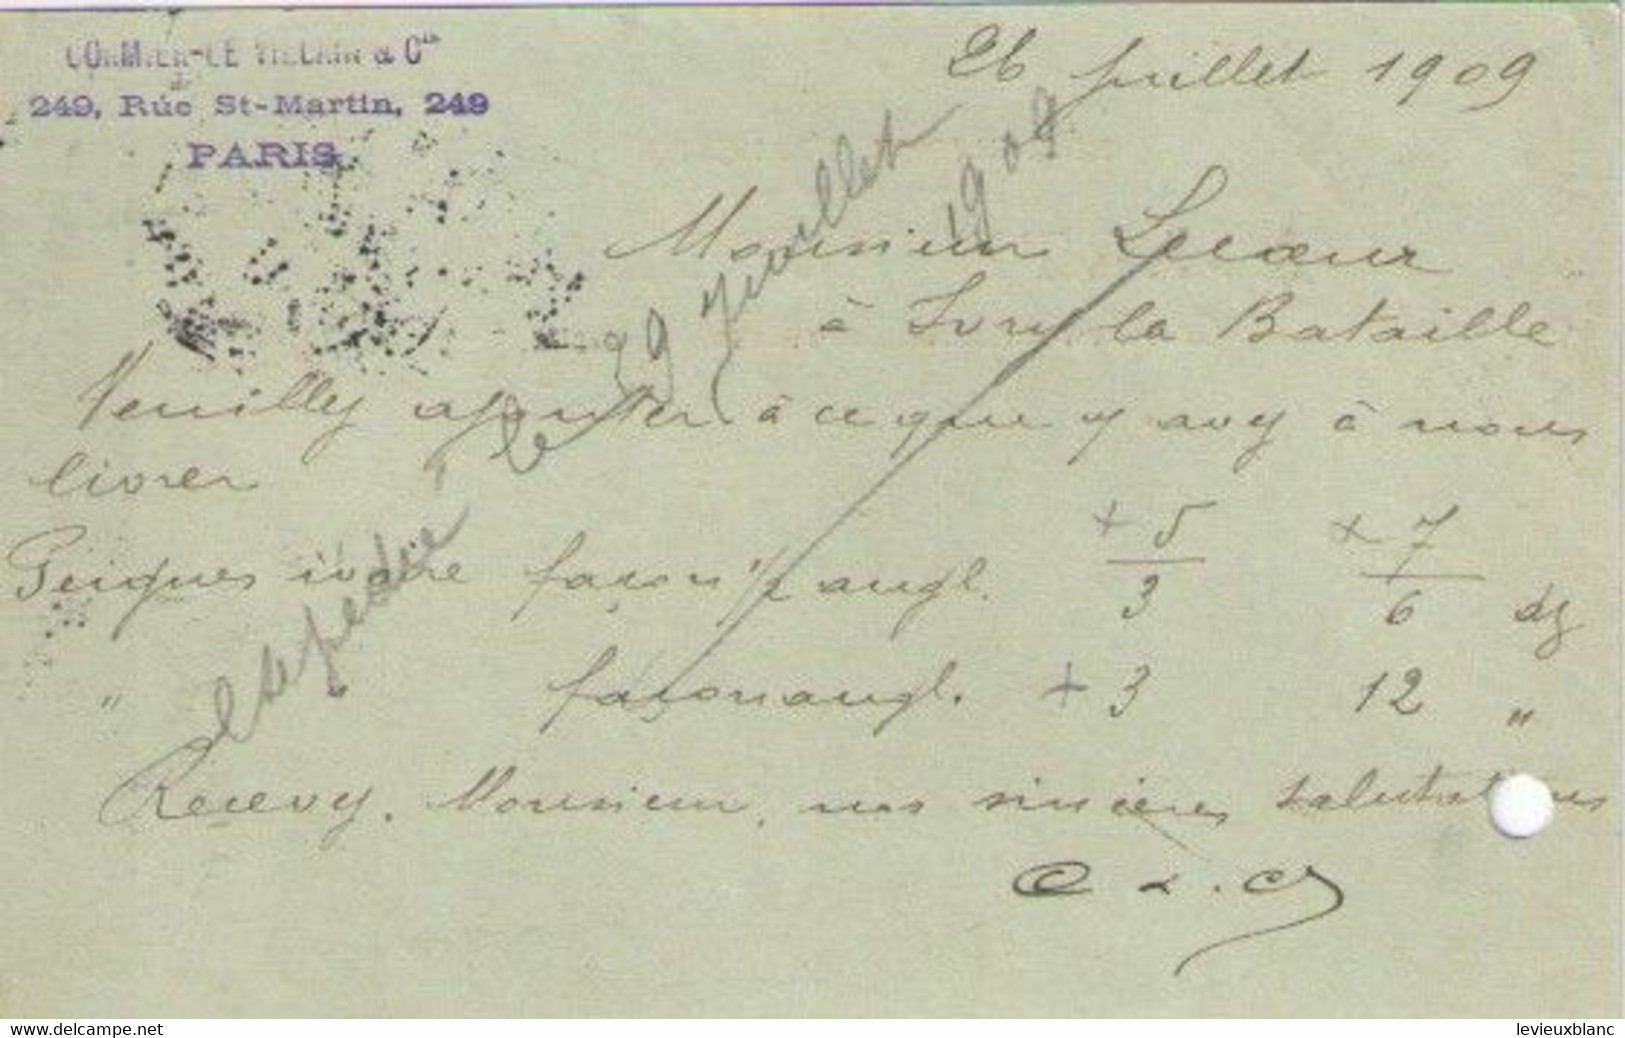 CORMIER-LE VILLAIN & Cie
249, Rue St-Martin, 249
PARIS
26 juillet 1909
Monsieur Lecoeur
à Ivry la Bataille
Veuillez ajouter à ce que y avez à nous
livrer
Peignes ivoire façon 1/2 angl. + 5/3 + 7/6 dz
" façon angl. + 3 12 "
Recevez, Monsieur, nos sincères salutations
expédié le 29 Juillet
1909
delcampe.net
levieuxblanc